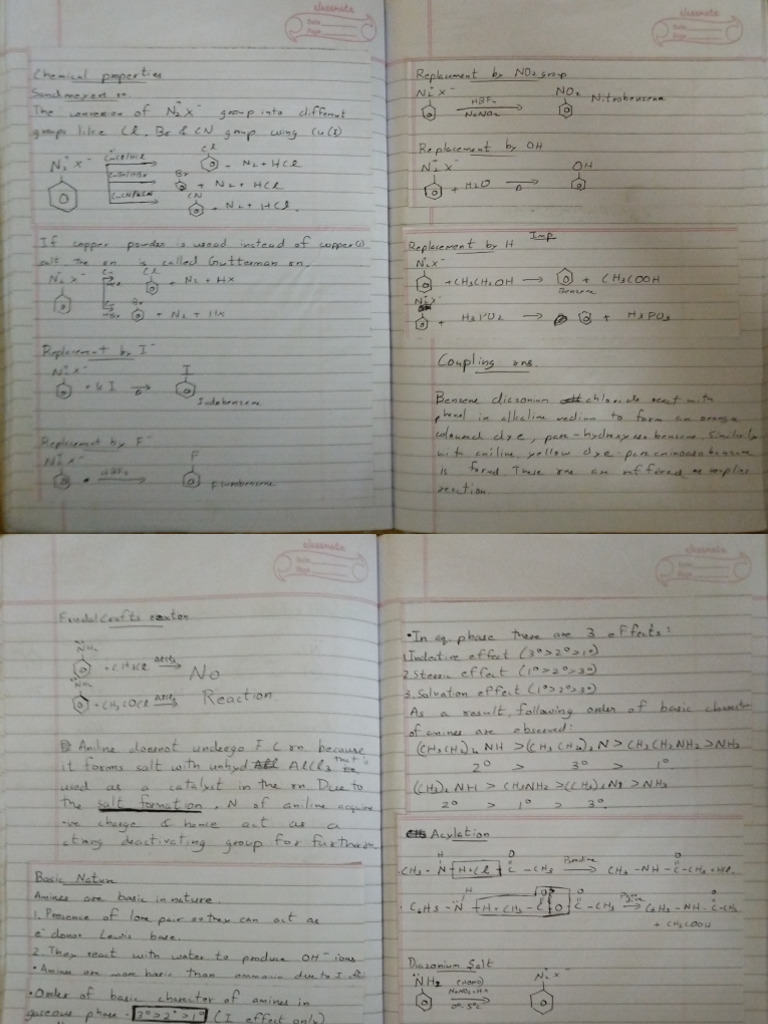 classmate
Date
Page
Chemical properties
Sandmeyers rn.
The conversion of N₂⁺X⁻ group into different
groups like Cl, Br & CN group using Cu(I)
N₂⁺X⁻
CuCl/HCl
Cl
+ N₂ + HCl
CuBr/HBr
Br
+ N₂ + HCl
CuCN/KCN
CN
+ N₂ + HCl.
If copper powder is used instead of copper(I)
salt the rn is called Gutterman rn.
N₂⁺X⁻
Cu
Cl
+ N₂ + HX
Cu
HBr
Br
+ N₂ + HX
Replacement by I⁻
N₂⁺X⁻
+ KI
Δ
I
Iodobenzene
Replacement by F⁻
N₂⁺X⁻
HBF₄
F
Flurobenzene
classmate
Date
Page
Replacement by NO₂ group
N₂⁺X⁻
HBF₄
NaNO₂
NO₂
Nitrobenzene
Replacement by OH
N₂⁺X⁻
+ H₂O
Δ
OH
Replacement by H Imp
N₂⁺X⁻
+ CH₃CH₂OH → + CH₃COOH
Benzene
N₂⁺X⁻
+ H₃PO₂ → + H₃PO₃
Coupling rns.
Benzene diazonium chloride react with
phenol in alkaline medium to form an orange
coloured dye, para-hydroxyazobenzene. Similarly
with aniline, yellow dye-para aminoazobenzene
is formed. These rns are reffered as coupling
reaction.
classmate
Date
Page
Friedal Crafts reaction
N̈H₂
+ CH₃Cl
AlCl₃
No
N̈H₂
+ CH₃COCl
AlCl₃
Reaction
Aniline doesnot undergo F.C rn because
it forms salt with unhyd AlCl₃ that is
used as a catalyst in the rn. Due to
the salt formation, N of aniline acquire
+ve charge & hence act as a
strong deactivating group for further rn
Basic Nature
Amines are basic in nature.
1. Presence of lone pair so they can act as
e⁻ donor Lewis base.
2. They react with water to produce OH⁻ ions
• Amines are more basic than ammonia due to I
• Order of basic character of amines in
gaseous phase - 3°>2°>1° (I effect only)
classmate
Date
Page
• In aq. phase there are 3 effects:
1. Inductive effect (3°>2°>1°)
2. Steric effect (1°>2°>3°)
3. Solvation effect (1°>2°>3°)
As a result, following order of basic character
of amines are observed:
(CH₃CH₂)₂NH > (CH₃CH₂)₃N > CH₃CH₂NH₂ > NH₃
2° > 3° > 1°
(CH₃)₂NH > CH₃NH₂ > (CH₃)₃N > NH₃
2° > 1° > 3°
Acylation
H O O
CH₃-N̈ H+Cl C-CH₃ CH₃-NH-C-CH₃+HCl.
H O O O
C₆H₅-N̈ H+CH₃-C O C-CH₃ C₆H₅-NH-C-CH₃
+ CH₃COOH
Diazonium Salt
N̈H₂
(HONO)
NaNO₂+HX
0°-5°C
N₂⁺X⁻